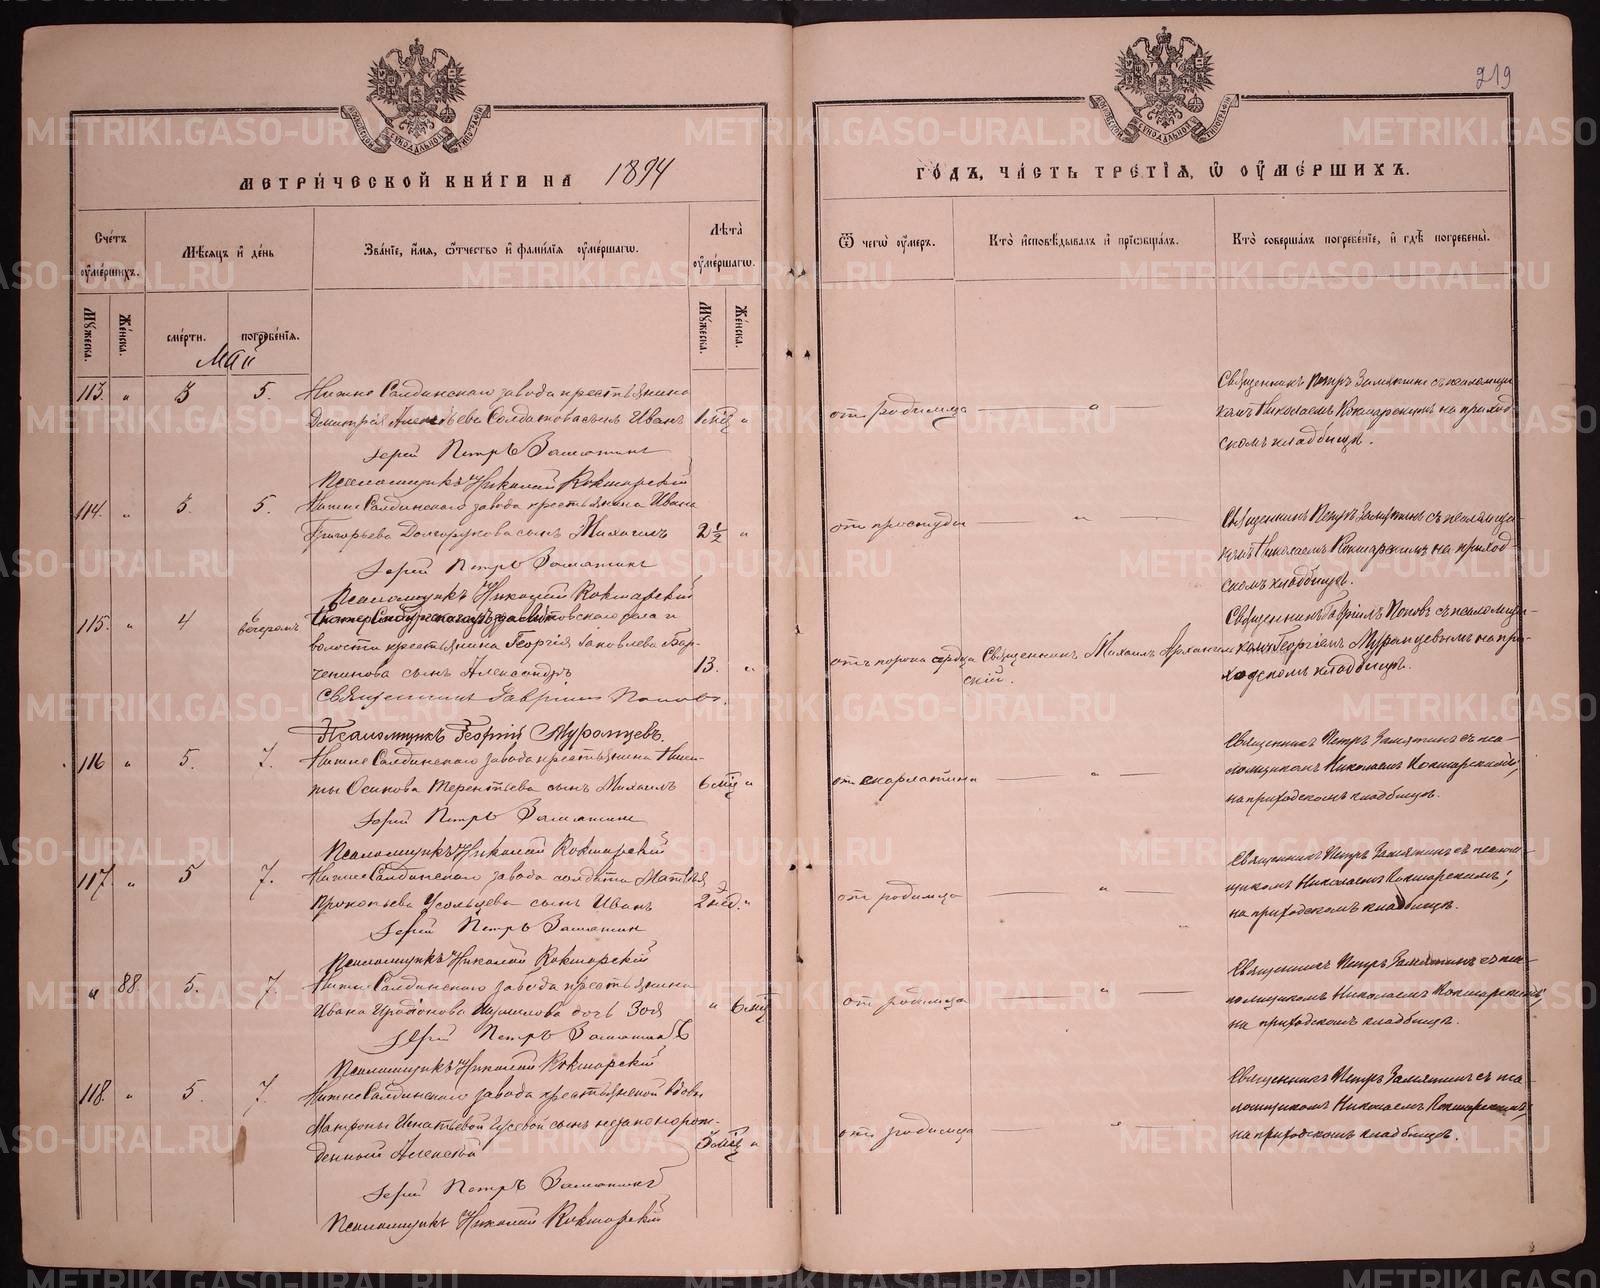 219
МЕТРИ́ЧЕСКОЙ КНИ́ГИ НА 1894 ГО́ДЪ, ЧА́СТЬ ТРЕТІѦ, Ѿ ОУ҆МЕ́РШИХЪ.
Сче́тъ оу҆ме́ршихъ.
Мѣ́сѧцъ и҆ де́нь
Зва́ніе, и҆́мѧ, ѻ҆́тчество и҆ фами́лїѧ оу҆ме́ршагѡ.
Лѣ́та оу҆ме́ршагѡ.
Ѿ чегѡ̀ оу҆́меръ.
Кто̀ и҆сповѣ́дывалъ и҆ прїѡбща́лъ.
Кто̀ соверша́лъ погребе́нїе, и҆ гдѣ̀ погребены̀.
Мꙋ́жеска.
Же́нска.
сме́рти.
погребе́нїѧ.
Мꙋ́жеска.
Же́нска.
Май
113. " 3 5. Нижне Салдинскаго завода крестьянина
Дмитрія Алексѣева Солдатова сынъ Иванъ 1 мц "
Іерей Петръ Замятинъ
Псаломщикъ Николай Кокшарскій
от родимца "
Священникъ Петръ Замятинъ съ псаломщи
комъ Николаемъ Кокшарскимъ на приход
скомъ кладбищѣ.
114. " 3. 5. Нижне Салдинскаго завода крестьянина Ивана
Григорьева Долгорукова сынъ Михаилъ 2 1/2 "
Іерей Петръ Замятинъ
Псаломщикъ Николай Кокшарскій
от простуды "
Священникъ Петръ Замятинъ съ псаломщи-
комъ Николаемъ Кокшарскимъ на приход-
скомъ кладбищѣ.
115. " 4 6 вечеромъ села и
волости крестьянина Георгія Іаковлева
сынъ Александръ. 13. "
Священникъ Гавріилъ Поповъ.
Псаломщикъ Георгій Муромцевъ.
отъ порока сердца Священникъ Михаилъ Архангель
скій.
Священникъ Гавріилъ Поповъ съ псаломщи-
комъ Георгіемъ Муромцевымъ на при-
ходскомъ кладбищѣ.
116 " 5. 7. Нижне Салдинскаго завода крестьянина Ники-
ты Осипова Терентьева сынъ Михаилъ 6 мц "
Іерей Петръ Замятинъ
Псаломщикъ Николай Кокшарскій
от скарлатины "
Священникъ Петръ Замятинъ съ пса-
ломщикомъ Николаемъ Кокшарскимъ,
на приходскомъ кладбищѣ.
117. " 5 7. Нижне Салдинскаго завода солдата Матвѣя
Прокопьева Усольцева сынъ Иванъ 2 нед. "
Іерей Петръ Замятинъ
Псаломщикъ Николай Кокшарскій
от родимца "
Священникъ Петръ Замятинъ съ псалом-
щикомъ Николаемъ Кокшарскимъ,
на приходскомъ кладбищѣ.
" 88. 5. 7. Нижне Салдинскаго завода крестьянина
Ивана Иродіонова Шумилова дочь Зоя " 6 мц
Іерей Петръ Замятинъ
Псаломщикъ Николай Кокшарскій
от родимца "
Священникъ Петръ Замятинъ съ пса-
ломщикомъ Николаемъ Кокшарскимъ,
на приходскомъ кладбищѣ.
118. " 5. 7. Нижне Салдинскаго завода крестьянской вдовы
Матроны Игнатьевой Гусевой сынъ незаконорож-
денный Алексѣй 3 мц "
Іерей Петръ Замятинъ
Псаломщикъ Николай Кокшарскій
от родимца "
Священникъ Петръ Замятинъ съ пса-
ломщикомъ Николаемъ Кокшарскимъ,
на приходскомъ кладбищѣ.
METRIKI.GASO-URAL.RU